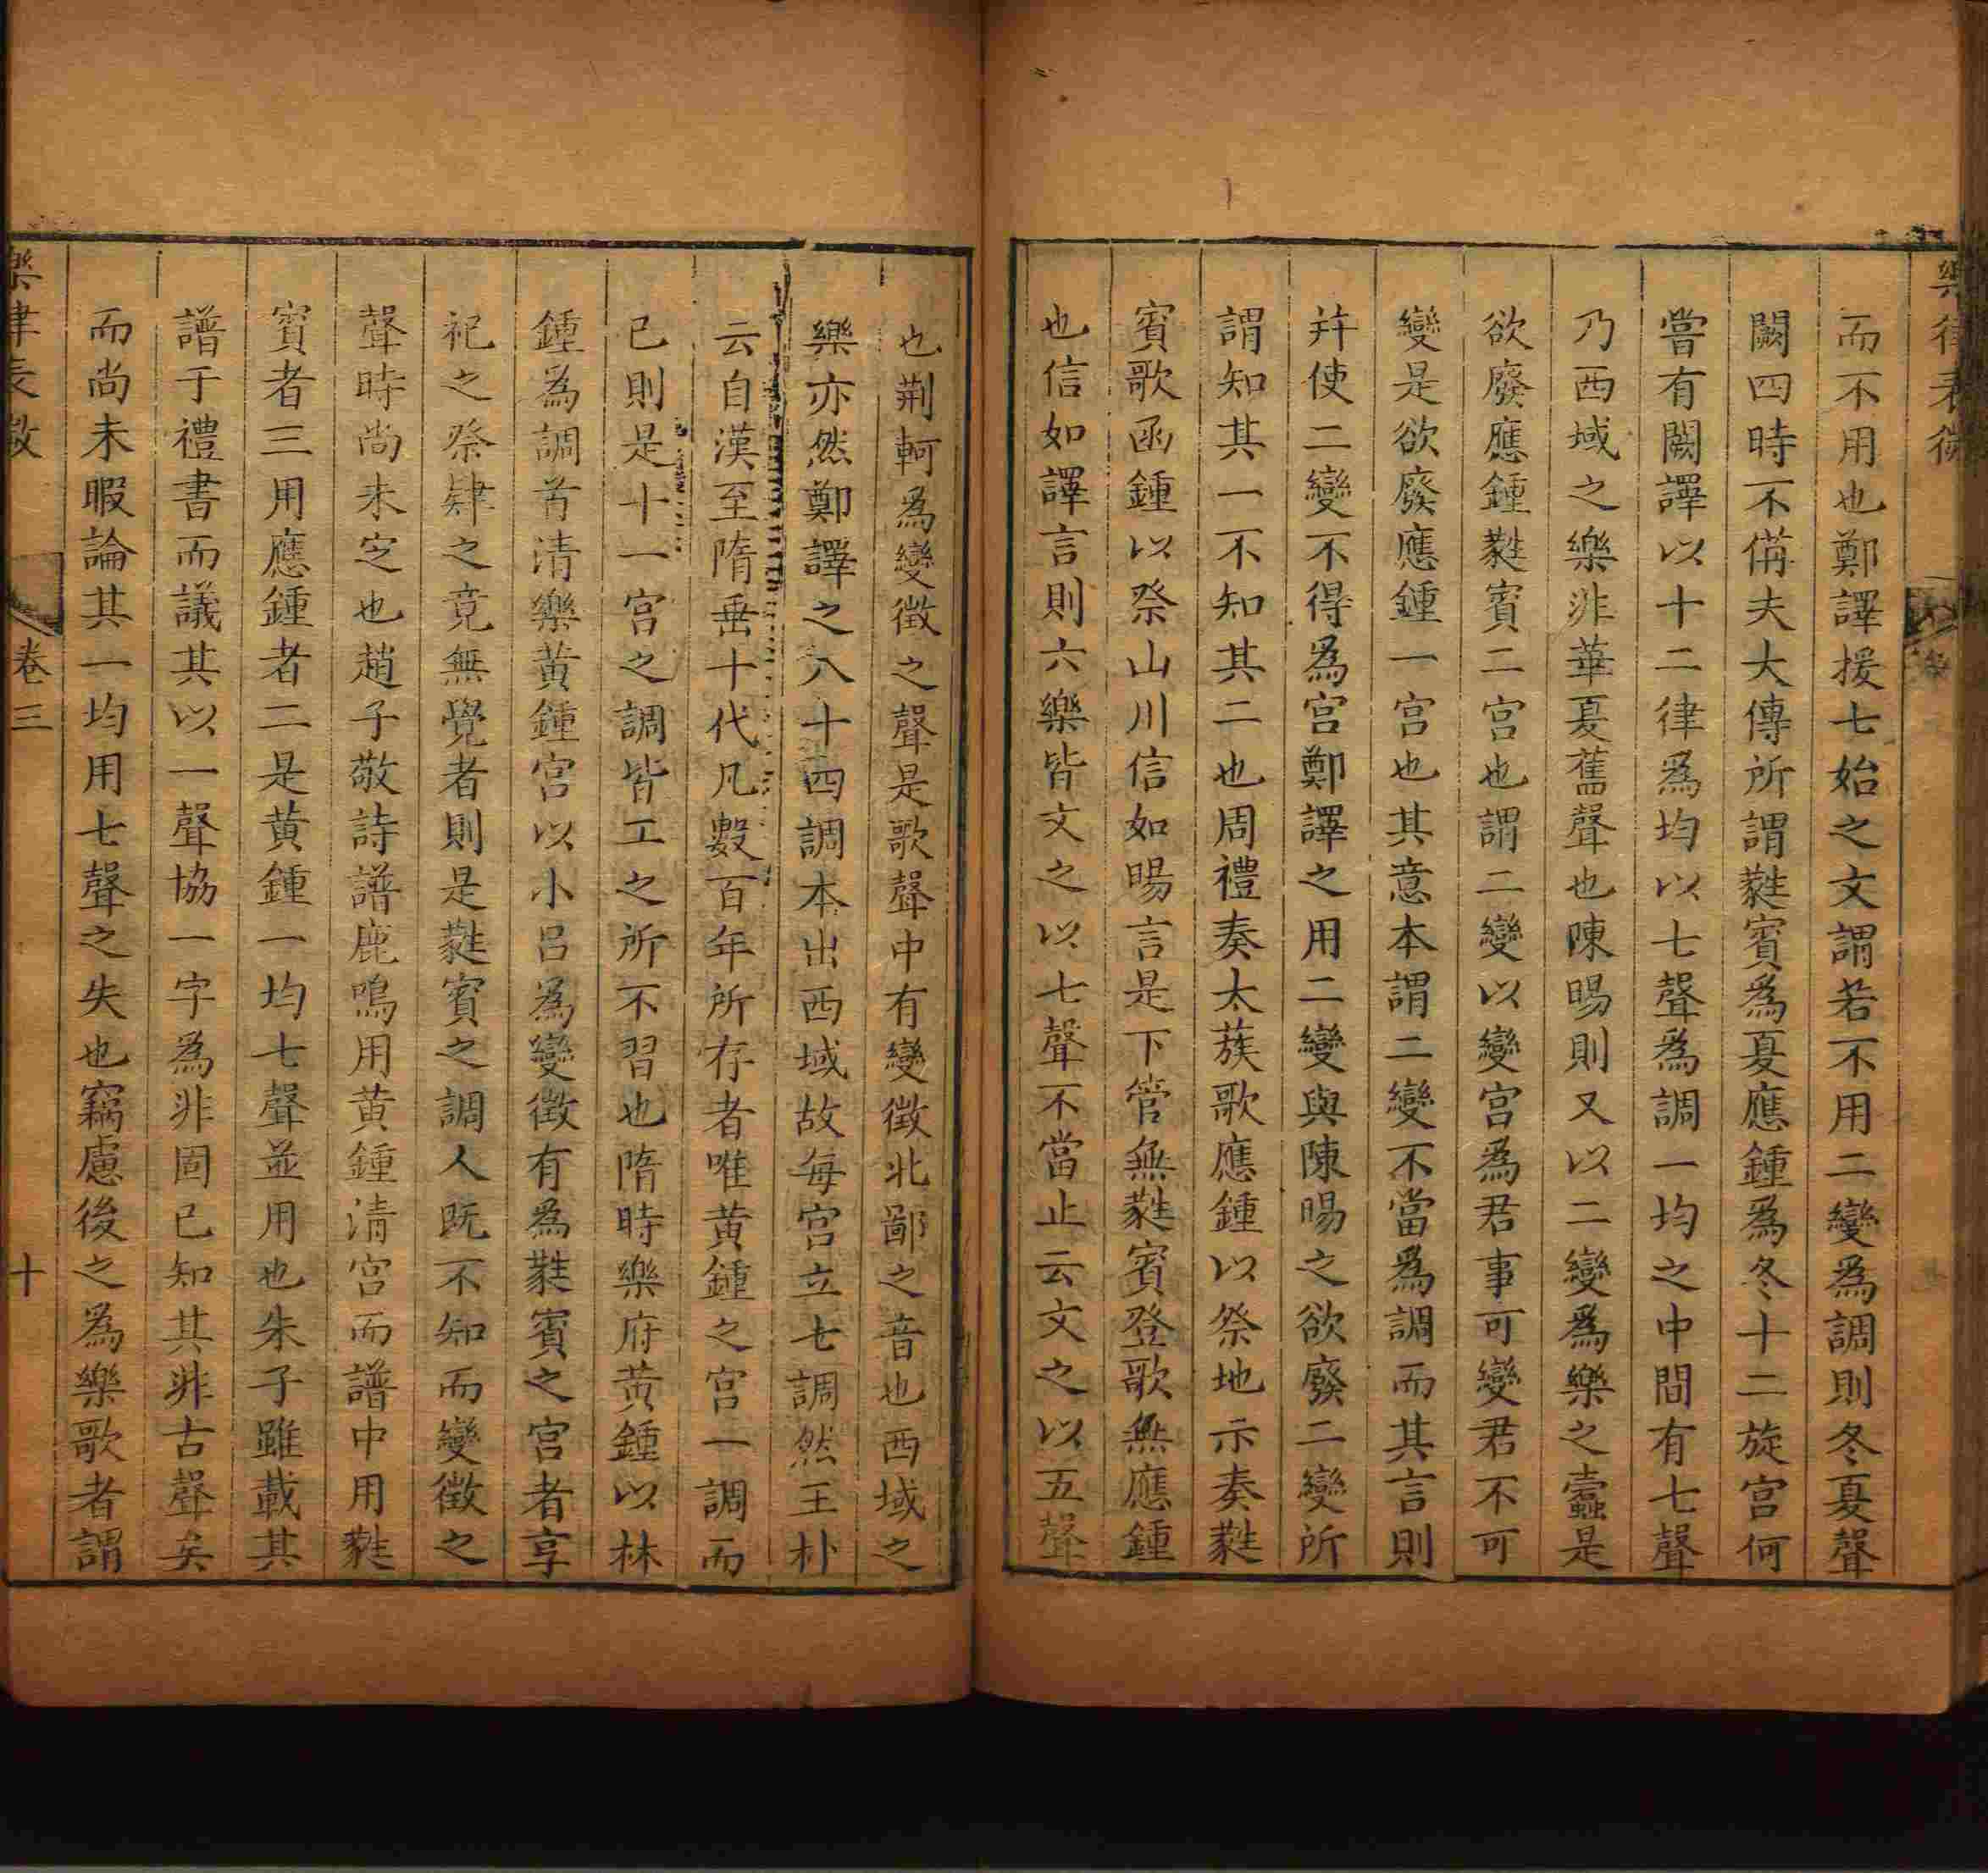 樂律表微
而不用也鄭譯援七始之文謂若不用二變爲調則冬夏聲
闕四時不備夫大傳所謂蕤賓爲夏應鍾爲冬十二旋宮何
嘗有闕譯以十二律爲均以七聲爲調一均之中間有七聲
乃西域之樂非華夏舊聲也陳暘則又以二變爲樂之蠹是
欲廢應鍾蕤賓二宮也謂二變以變宮爲君事可變君不可
變是欲廢應鍾一宮也其意本謂二變不當爲調而其言則
幷使二變不得爲宮鄭譯之用二變與陳暘之欲廢二變所
謂知其一不知其二也周禮奏太蔟歌應鍾以祭地示奏蕤
賓歌函鍾以祭山川信如暘言是下管無蕤賓登歌無應鍾
也信如譯言則六樂皆文之以七聲不當止云文之以五聲
也荆軻爲變徵之聲是歌聲中有變徵北鄙之音也西域之
樂亦然鄭譯之八十四調本出西域故每宮立七調然王朴
云自漢至隋垂十代凡數百年所存者唯黃鍾之宮一調而
已則是十一宮之調皆工之所不習也隋時樂府黃鍾以林
鍾爲調首清樂黃鍾宮以小呂爲變徵有爲蕤賓之宮者享
祀之祭肄之竟無覺者則是蕤賓之調人旣不知而變徵之
聲時尚未定也趙子敬詩譜鹿鳴用黃鍾清宮而譜中用蕤
賓者三用應鍾者二是黃鍾一均七聲並用也朱子雖載其
譜于禮書而議其以一聲協一字爲非固已知其非古聲矣
而尚未暇論其一均用七聲之失也竊慮後之爲樂歌者謂
樂律表微 卷三 十